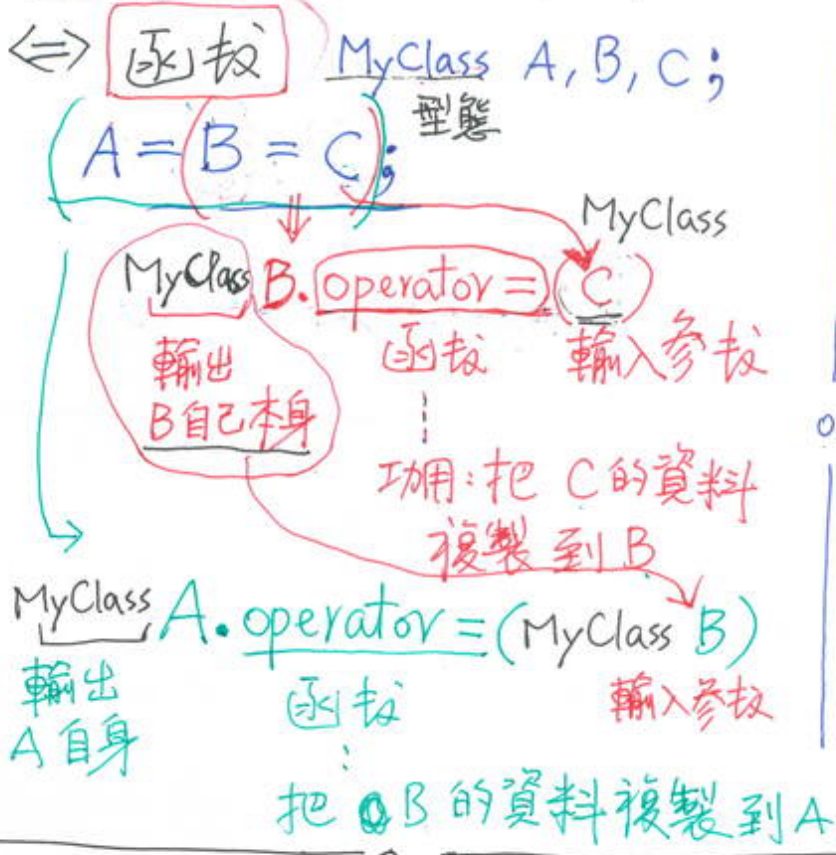 ⇔ 函数 MyClass A, B, C;
型態
(A=(B = C);
MyClass
MyClass B. operator = (C)
輸出 函数 輸入参数
B自己本身
功用:把 C的資料
複製到B
MyClass A. operator = (MyClass B)
輸出 函数 輸入参数
A自身
把 B的資料複製到A